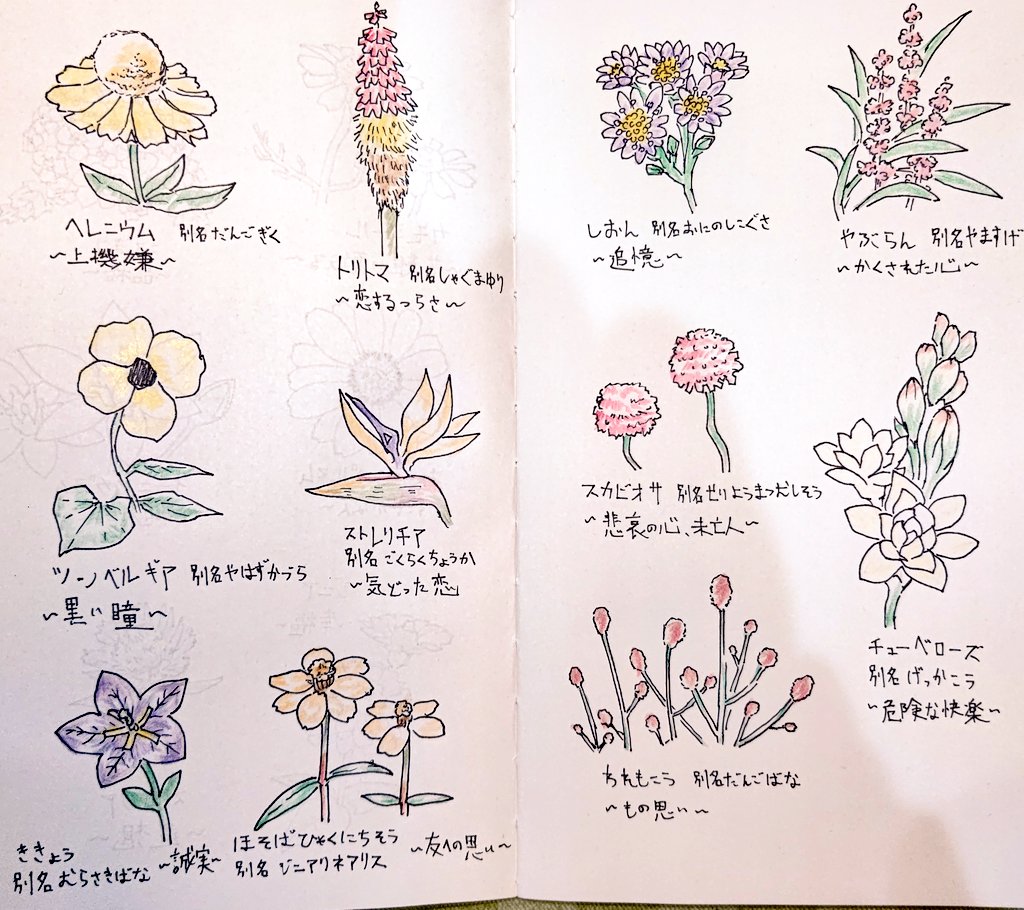 ヘレニウム 別名だんごぎく
～上機嫌～
トリトマ 別名しゃぐまゆり
～恋するつらさ～
ツーンベルギア 別名やはずかづら
～黒い瞳～
ストレリチア
別名ごくらくちょうか
～気どった恋
ききょう
別名むらさきばな
～誠実～
ほそばひゃくにちそう
別名 ジニアリネアリス
～友への思い～
しおん 別名おにのしこぐさ
～追憶～
やぶらん 別名やますげ
～かくされた心～
スカビオサ 別名せりようまつむしそう
～悲哀の心、未亡人～
チューベローズ
別名げっかこう
～危険な快楽～
われもこう 別名だんごばな
～もの思い～